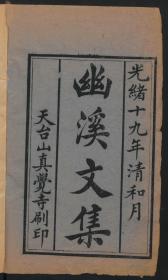 光緒十九年清和月
幽溪文集
天台山真覺寺刷印